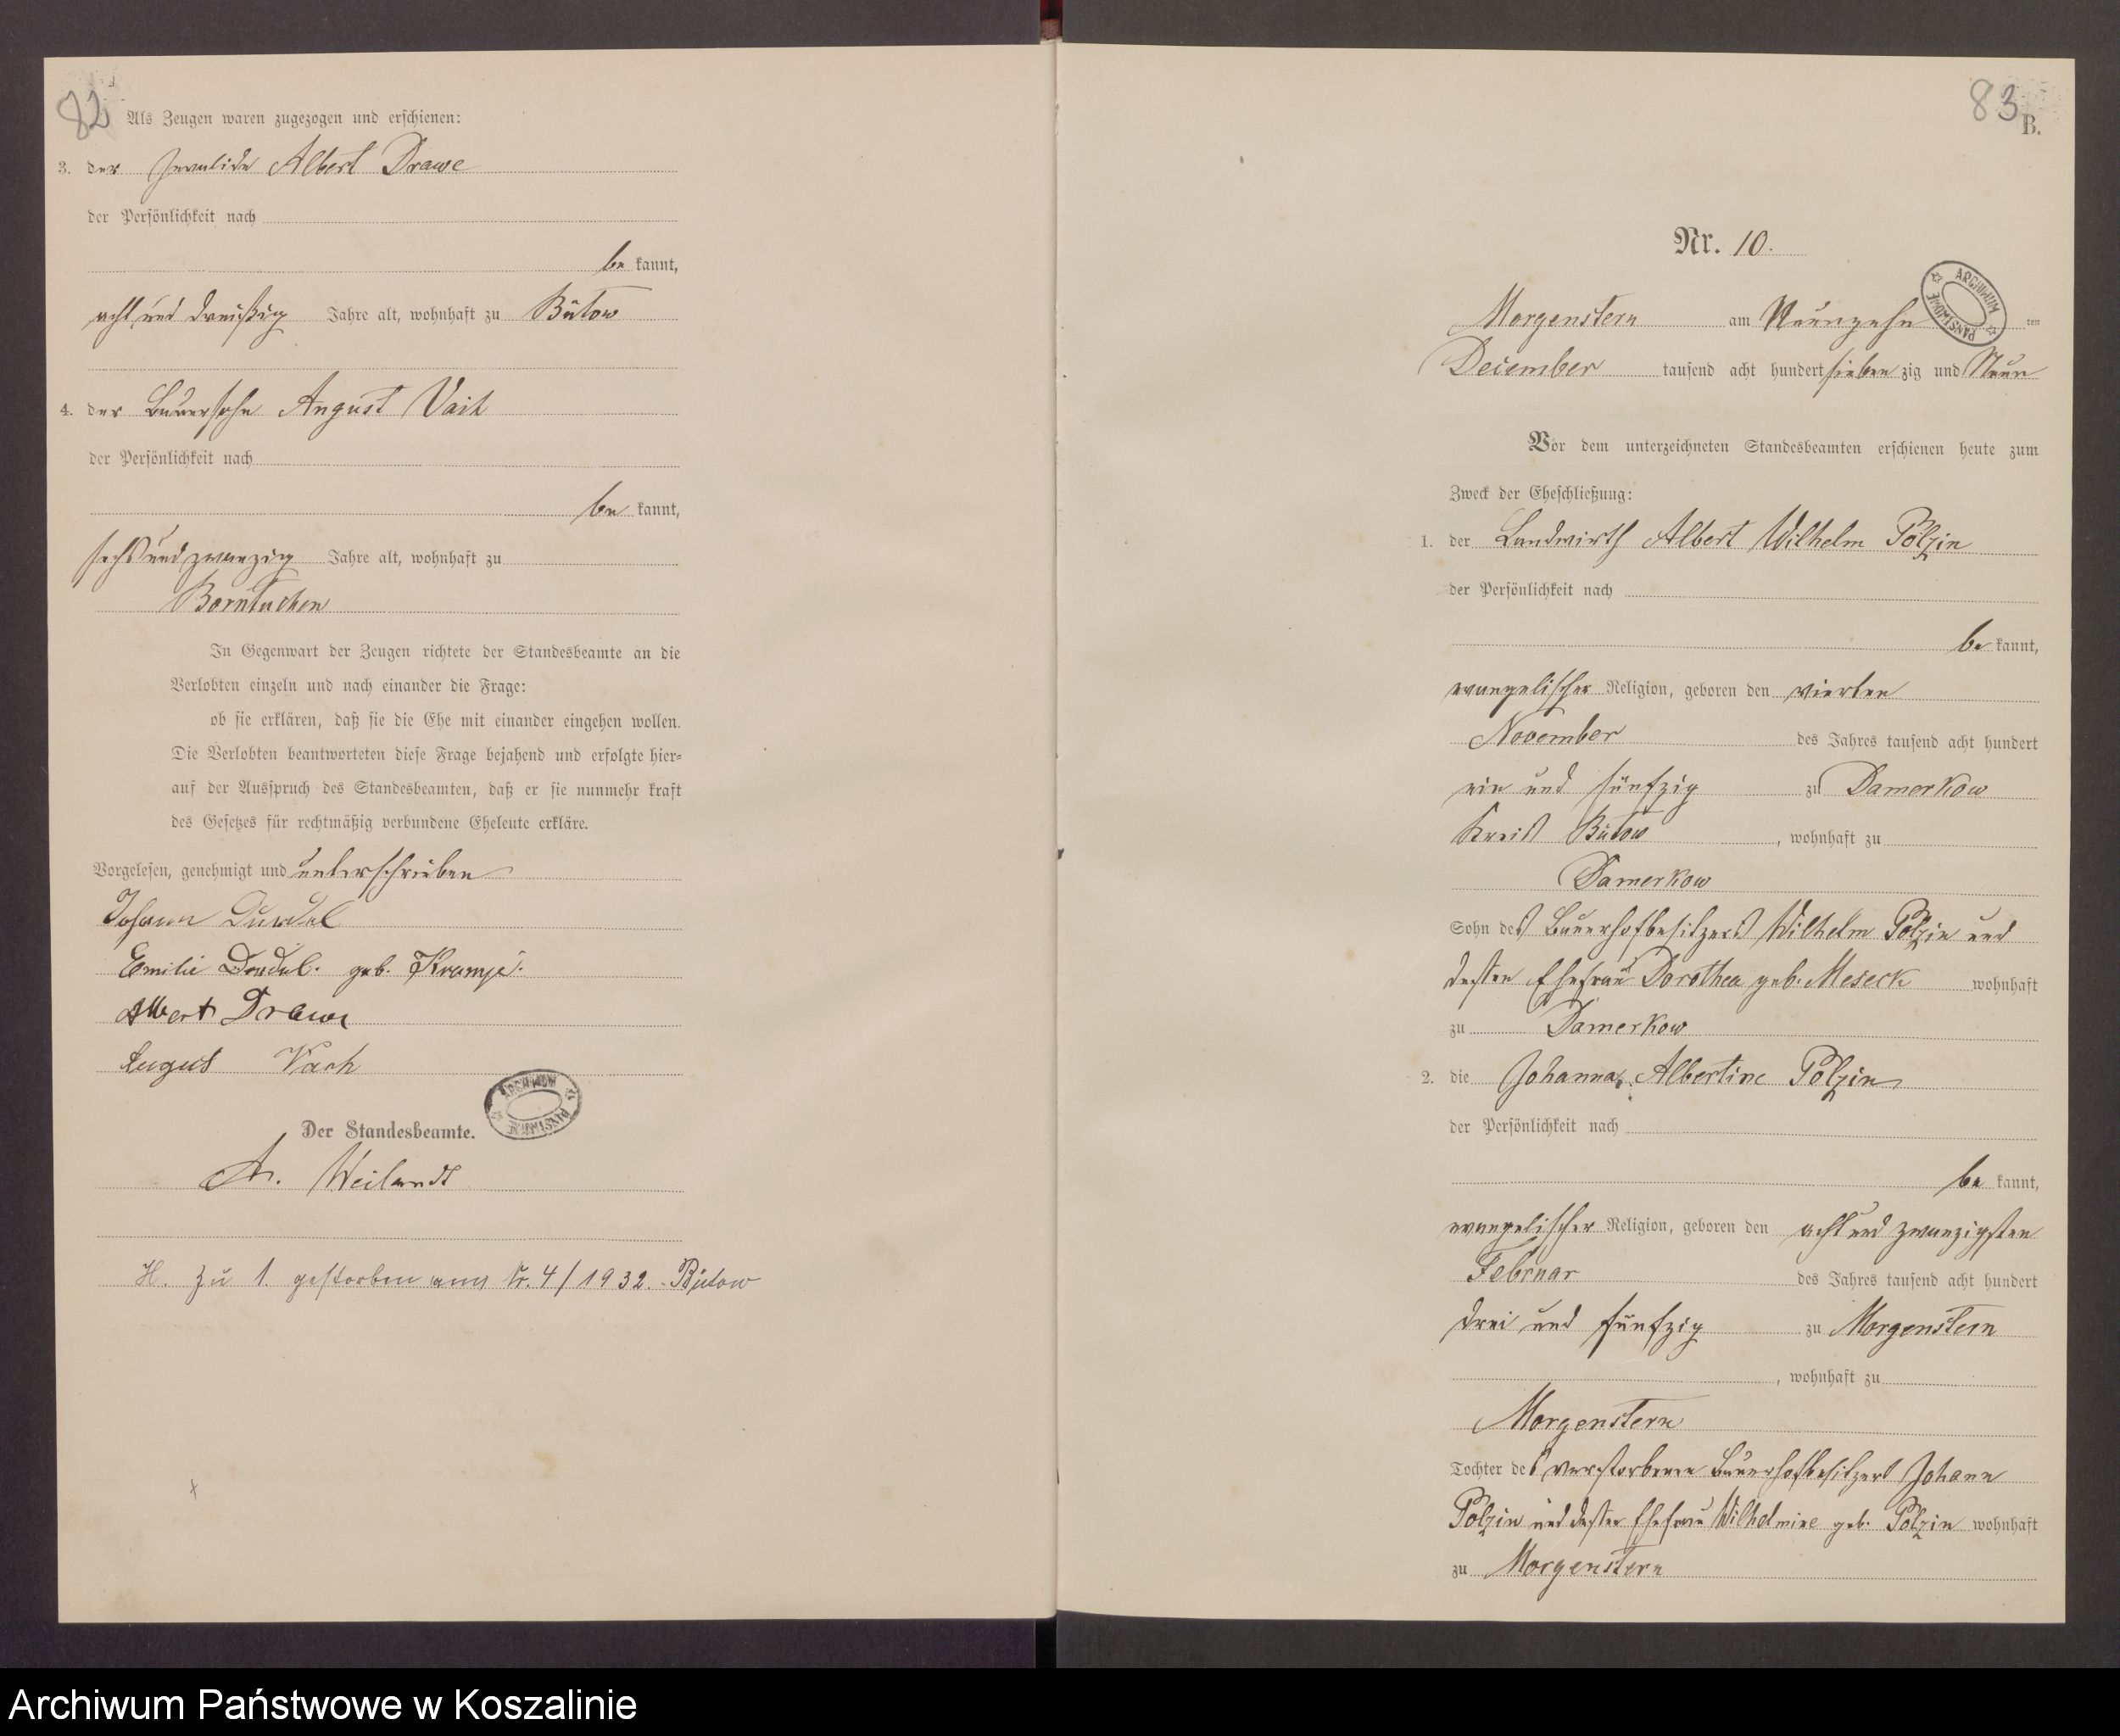 82
Als Zeugen waren zugezogen und erschienen:
3. der Invalide Albert Drawe
der Persönlichkeit nach
be kannt,
acht und dreißig Jahre alt, wohnhaft zu Bütow
4. der Bauersohn August
der Persönlichkeit nach
be kannt,
sechs und zwanzig Jahre alt, wohnhaft zu
Borntuchen
In Gegenwart der Zeugen richtete der Standesbeamte an die
Verlobten einzeln und nach einander die Frage:
ob sie erklären, daß sie die Ehe mit einander eingehen wollen.
Die Verlobten beantworteten diese Frage bejahend und erfolgte hier-
auf der Ausspruch des Standesbeamten, daß er sie nunmehr kraft
des Gesetzes für rechtmäßig verbundene Eheleute erkläre.
Vorgelesen, genehmigt und unterschrieben
Johann
Emilie geb.
Albert Drawe
August
Der Standesbeamte.
A. Weilandt
H. zu 1. gestorben am Nr. 4/1932 Bütow
83
B.
Nr. 10.
ARCHIWUM PAŃSTWOWE
Morgenstern am Neunzehn ten
December tausend acht hundert sieben zig und Neun
Vor dem unterzeichneten Standesbeamten erschienen heute zum
Zweck der Eheschließung:
1. der Landwirth Albert Wilhelm Polzin
der Persönlichkeit nach
be kannt,
evangelischer Religion, geboren den vierten
November des Jahres tausend acht hundert
ein und fünfzig zu Damerkow
Kreis Bütow, wohnhaft zu
Damerkow
Sohn des Bauerhofbesitzers Wilhelm Polzin und
dessen Ehefrau Dorothea geb. Meseck wohnhaft
zu Damerkow
2. die Johanna, Albertine Polzin
der Persönlichkeit nach
be kannt,
evangelischer Religion, geboren den acht und zwanzigsten
Februar des Jahres tausend acht hundert
drei und fünfzig zu Morgenstern
, wohnhaft zu
Morgenstern
Tochter des verstorbenen Bauerhofbesitzers Johann
Polzin und dessen Ehefrau Wilhelmine geb. Polzin wohnhaft
zu Morgenstern
Archiwum Państwowe w Koszalinie